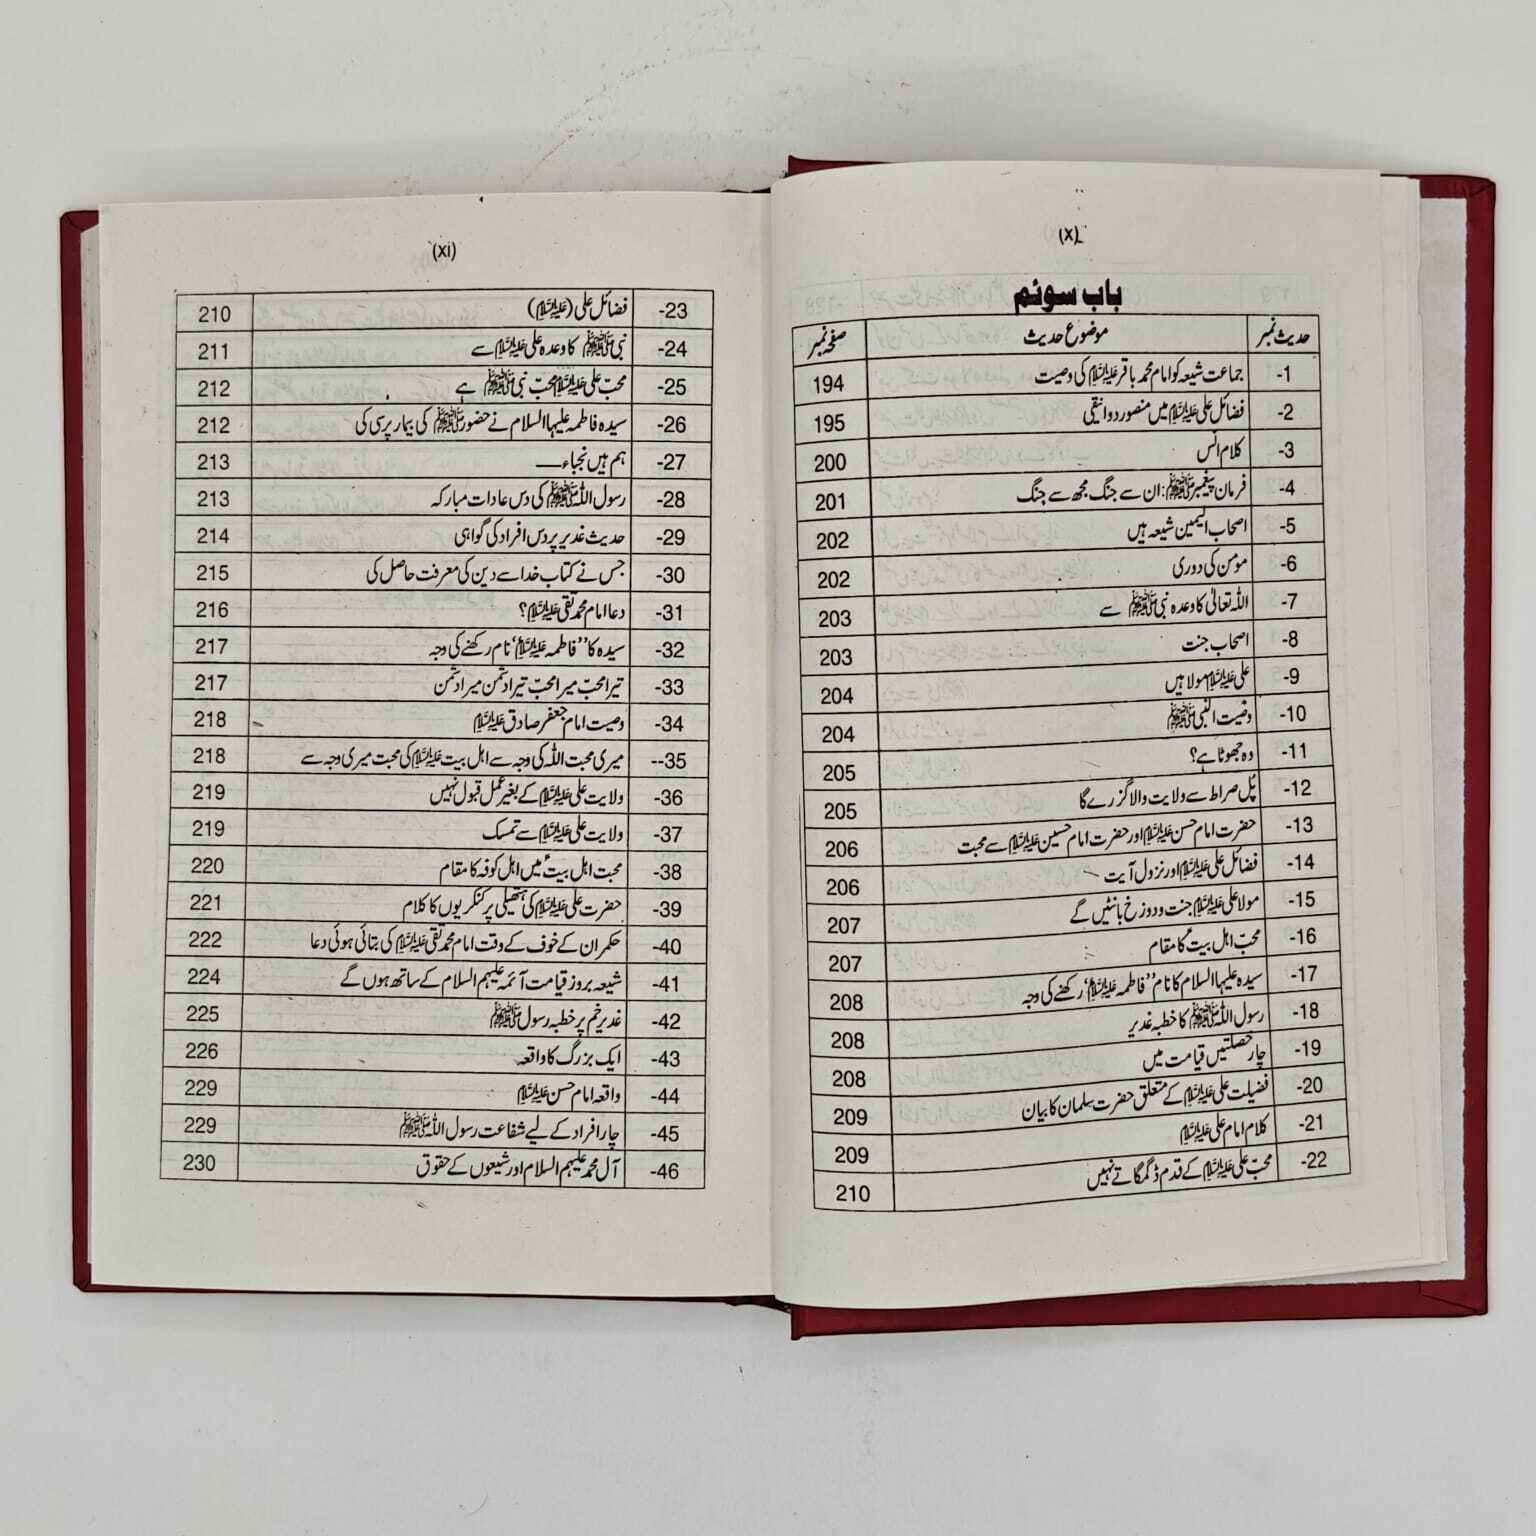 (x)
باب سوئم
حدیث نمبر موضوع حدیث صفحہ نمبر
1- جماعت شیعہ کو امام محمد باقر علیہ السلام کی وصیت 194
2- فضائل علی علیہ السلام میں منصور دوانیقی 195
3- کلام انس 200
4- فرمان پیغمبر ﷺ: ان سے جنگ مجھ سے جنگ 201
5- اصحاب الیمین شیعہ ہیں 202
6- مومن کی دوری 202
7- اللہ تعالیٰ کا وعدہ نبی ﷺ سے 203
8- اصحاب جنت 203
9- علی علیہ السلام مولا ہیں 204
10- وصیت النبی ﷺ 204
11- وہ جھوٹا ہے؟ 205
12- پل صراط سے ولایت والا گزرے گا 205
13- حضرت امام حسن علیہ السلام اور حضرت امام حسین علیہ السلام سے محبت 206
14- فضائل علی علیہ السلام اور نزول آیت 206
15- مولا علی علیہ السلام جنت و دوزخ بانٹیں گے 207
16- محبّ اہل بیتؑ کا مقام 207
17- سیدہ علیہا السلام کا نام "فاطمہ علیہ السلام" رکھنے کی وجہ 208
18- رسول اللہ ﷺ کا خطبہ غدیر 208
19- چار خصلتیں قیامت میں 208
20- فضیلت علی علیہ السلام کے متعلق حضرت سلمان کا بیان 209
21- کلام امام علی علیہ السلام 209
22- محبّ علی علیہ السلام کے قدم ڈگمگاتے نہیں 210
(xi)
23- فضائل علی (علیہ السلام) 210
24- نبی ﷺ کا وعدہ علی علیہ السلام سے 211
25- محبّ علی علیہ السلام محبّ نبی ﷺ ہے 212
26- سیدہ فاطمہ علیہا السلام نے حضور ﷺ کی بیمار پرسی کی 212
27- ہم ہیں نجباء— 213
28- رسول اللہ ﷺ کی دس عادات مبارکہ 213
29- حدیث غدیر پر دس افراد کی گواہی 214
30- جس نے کتاب خدا سے دین کی معرفت حاصل کی 215
31- دعا امام محمد تقی علیہ السلام؟ 216
32- سیدہ کا "فاطمہ علیہ السلام" نام رکھنے کی وجہ 217
33- تیرا محبّ میرا محبّ تیرا دشمن میرا دشمن 217
34- وصیت امام جعفر صادق علیہ السلام 218
35-- میری محبت اللہ کی وجہ سے اہل بیت علیہ السلام کی محبت میری وجہ سے 218
36- ولایت علی علیہ السلام کے بغیر عمل قبول نہیں 219
37- ولایت علی علیہ السلام سے تمسک 219
38- محبت اہل بیتؑ میں اہل کوفہ کا مقام 220
39- حضرت علی علیہ السلام کی ہتھیلی پر کنکریوں کا کلام 221
40- حکمران کے خوف کے وقت امام محمد تقی علیہ السلام کی بتائی ہوئی دعا 222
41- شیعہ بروز قیامت آئمہ علیہم السلام کے ساتھ ہوں گے 224
42- غدیر خم پر خطبہ رسول ﷺ 225
43- ایک بزرگ کا واقعہ 226
44- واقعہ امام حسن علیہ السلام 229
45- چار افراد کے لیے شفاعت رسول اللہ ﷺ 229
46- آل محمد علیہم السلام اور شیعوں کے حقوق 230